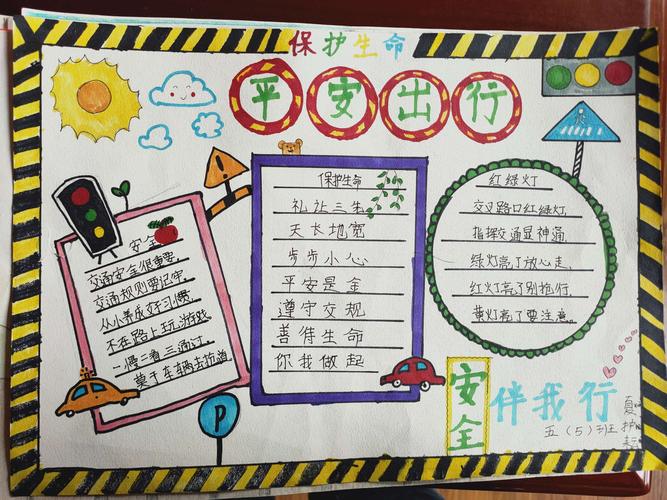 保护生命
平安出行
安全
交通安全很重要
交通规则要记牢
从小养成好习惯
不在路上玩游戏
一慢二看三通过
莫于车辆去抢道
保护生命
礼让三先
天长地宽
步步小心
平安是金
遵守交规
善待生命
你我做起
红绿灯
交叉路口红绿灯,
指挥交通显神通,
绿灯亮了放心走,
红灯亮了别抢行,
黄灯亮了要注意。
P
安全
伴我行
五(5)班
夏